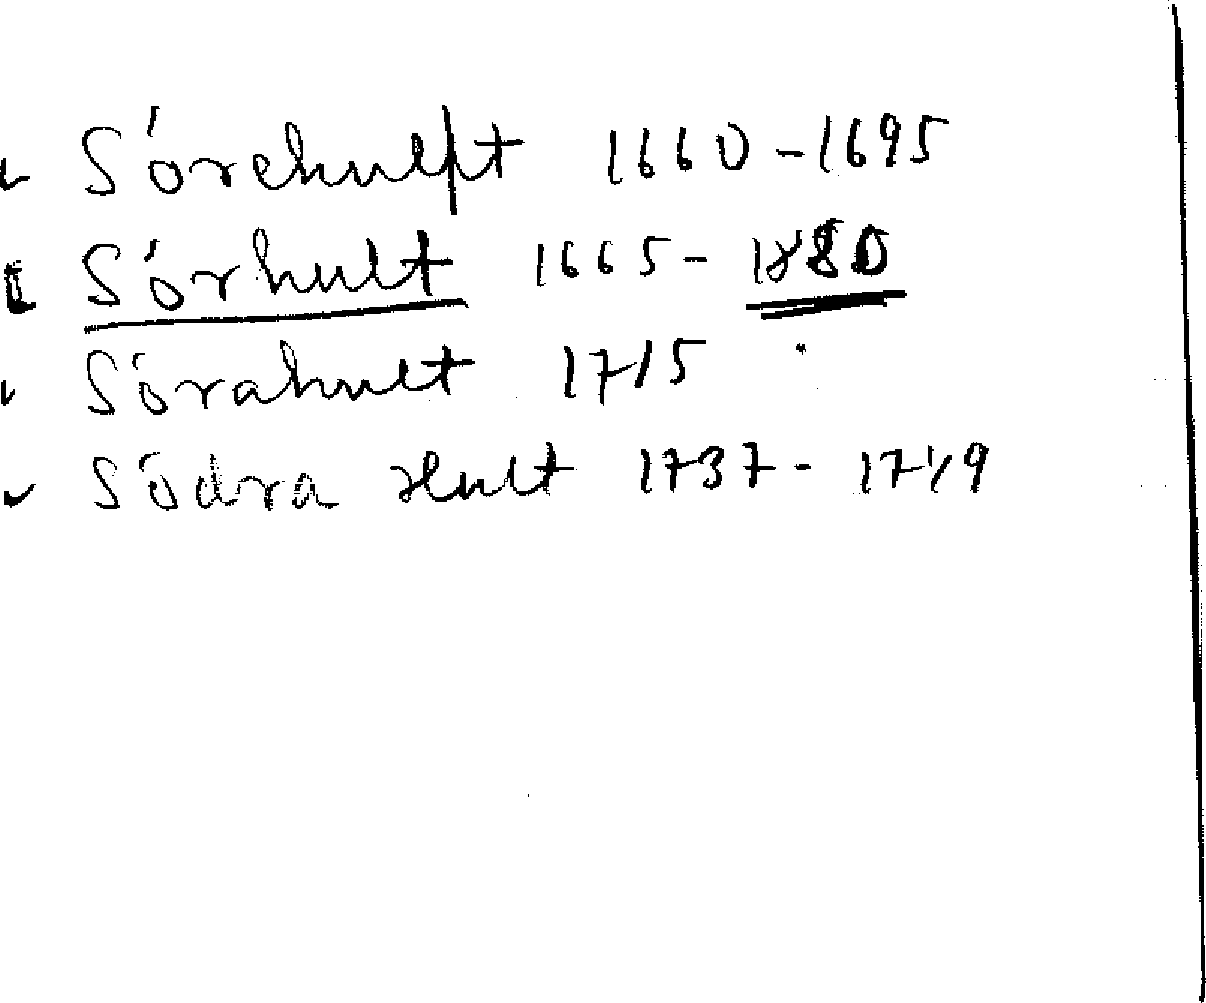 Sörehullt 1660-1695
Sörhult 1665-1880
Sörahult 1715
Södra Hult 1737-1749